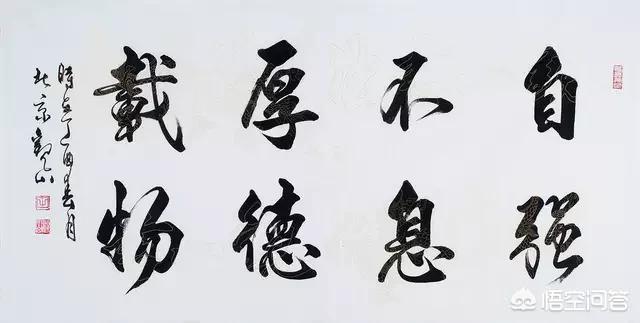 自強
不息
厚德
載物
時在丁酉春月
北京
悟空问答